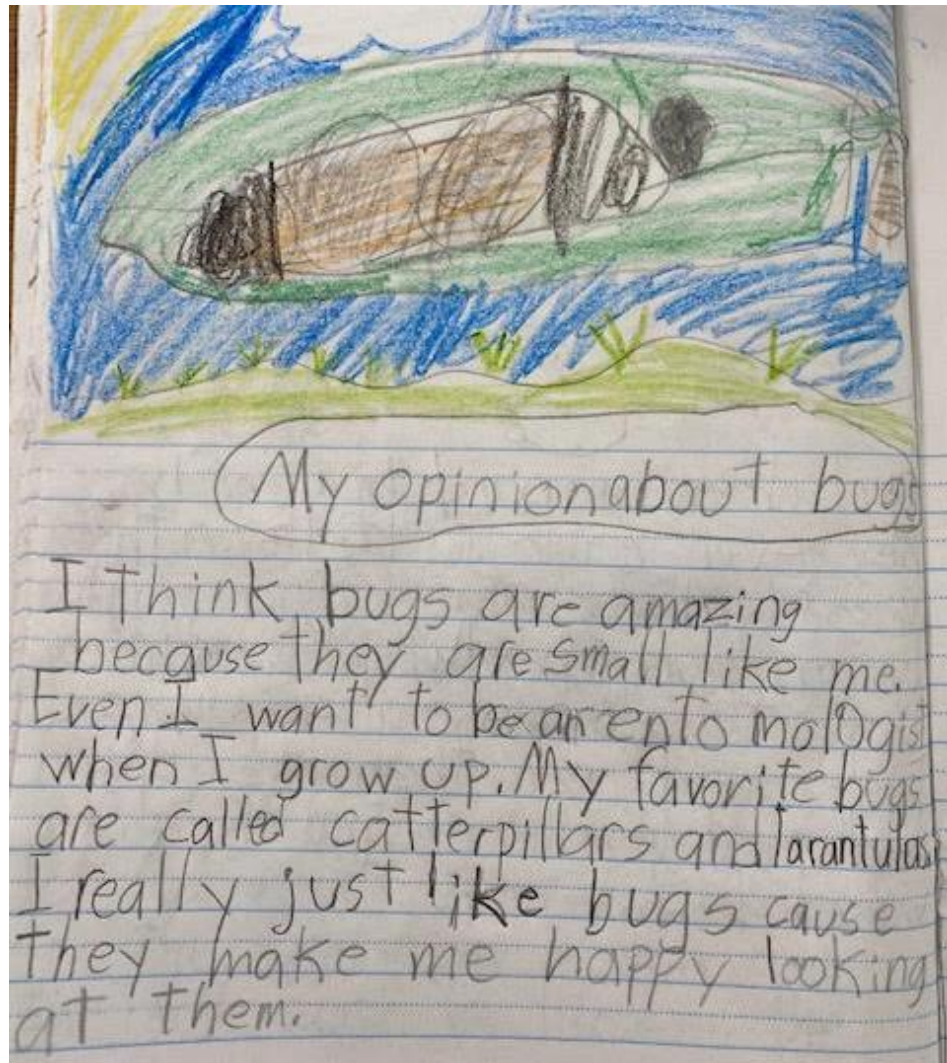 My opinion about bugs
I think bugs are amazing
because they are small like me.
Even I want to be an entomologist
when I grow up. My favorite bugs
are called catterpillars and tarantulas
I really just like bugs cause
they make me happy looking
at them.